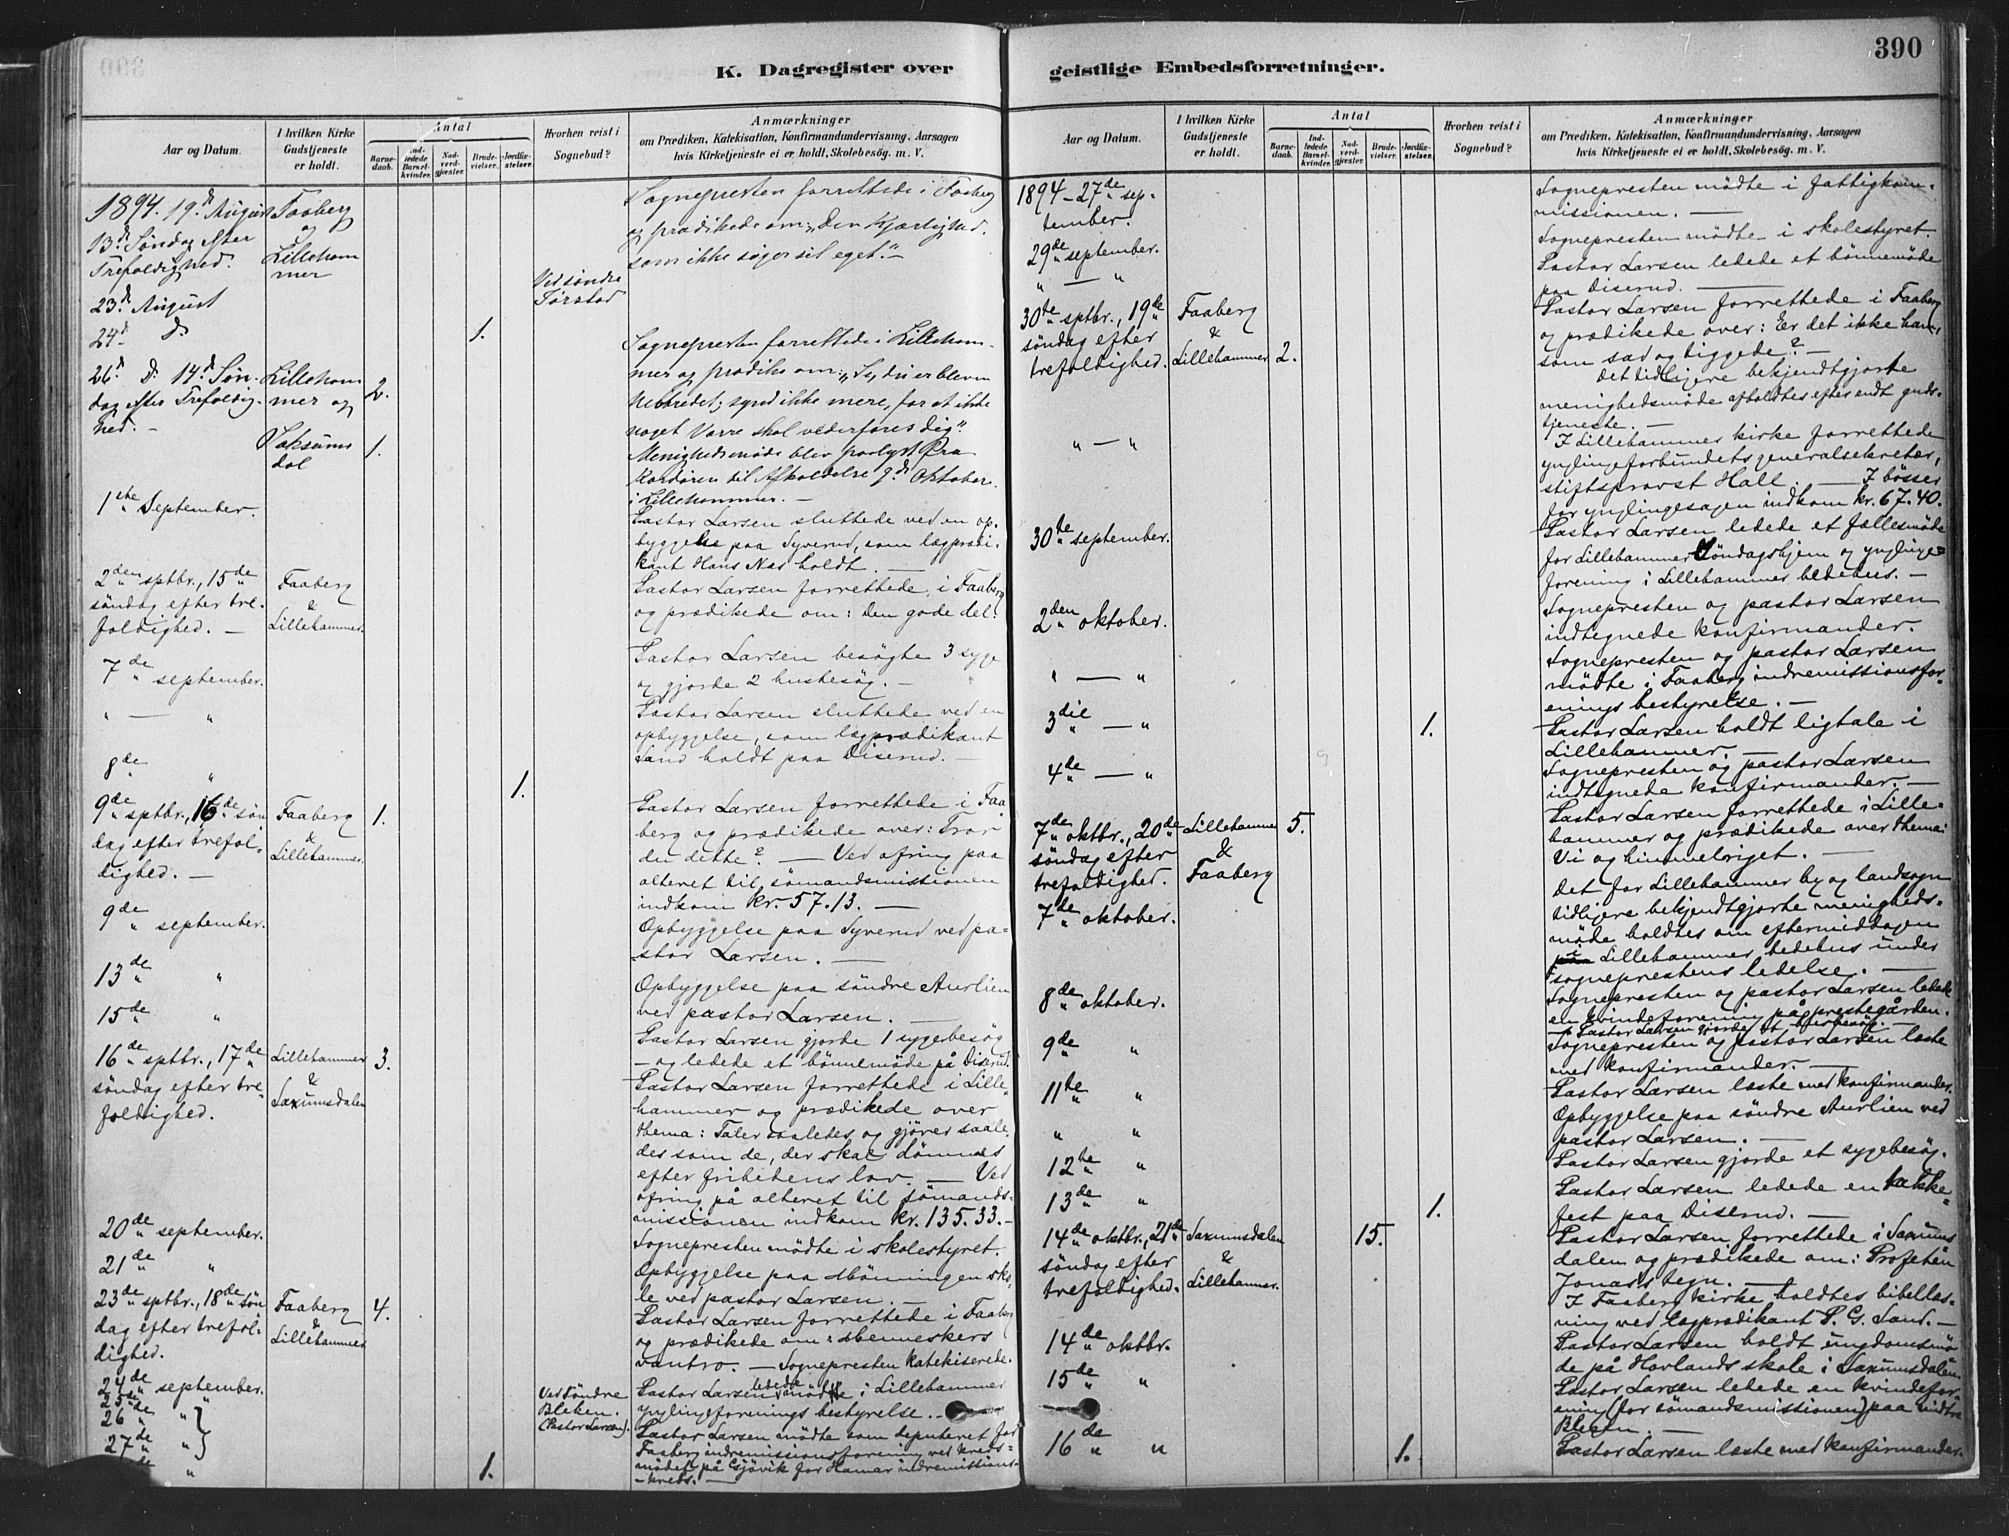 390
K. Dagregister over
geistlige Embedsforretninger.
Aar og Datum.
I hvilken Kirke
Gudstjeneste
er holdt.
Antal
Barne-
daab.
Ind-
ledede
Barsel-
kvinder.
Nad-
verd-
gjæster.
Brude-
vielser.
Jordfæ-
stelser.
Hvorhen reist i
Sognebud?
Anmærkninger
om Prædiken, Katekisation, Konfirmandundervisning, Aarsagen
hvis Kirketjeneste ei er holdt, Skolebesøg. m. V.
1894. 19d August
13d Søndag efter
Trefoldighed.
Faaberg
og
Lilleham
mer
Sognepresten forrettede i Faaberg
og prædikede om: "den Kjærlighed.
som ikke søger sit eget." –
23d August
Ved søndre
Tørstad
24d D
1.
26d D. 14d Søn-
dag efter Trefoldig-
hed. –
Lilleham
mer og
Saksums
dal
2.
1.
Sognepresten forrettede i Lilleham-
mer og prædike om: "Se, du er bleven
helbredet; synd ikke mere, for at ikke
noget Værre skal vederfares dig".
Menighedsmøde blev paalyst
til Afholdelse 7d Oktober
i Lillehammer. –
1ste September.
Pastor Larsen sluttede ved en op-
byggelse paa Syverud, som lægprædi-
kant Hans Næs holdt. –
2den sptbr., 15de
søndag efter tre-
foldighed. –
Faaberg
&
Lillehammer.
Pastor Larsen forrettede i Faaberg
og prædikede om: Den gode del.
7de september.
Pastor Larsen besøgte 3 syge
og gjorde 2 husbesøg. –
" — "
Pastor Larsen sluttede ved en
opbyggelse, som lægprædikant
Sand holdt paa Diserud. –
8de "
1.
9de sptbr., 16de søn
dag efter trefol-
dighed. –
Faaberg
&
Lillehammer.
1.
Pastor Larsen forrettede i Faa
berg og prædikede over: Tror
du dette? – Ved ofring paa
alteret til sömandsmissionen
indkom kr. 57.13. –
9de september.
Opbyggelse paa Syverud ved pa-
stor Larsen. –
13de "
Opbyggelse paa söndre Aurlien
ved pastor Larsen. –
15de "
Pastor Larsen gjorde 1 sygebesög
– og ledede et bönnemöde på Diserud.
16de sptbr., 17de
søndag efter tre-
foldighed.
Lillehammer
&
Saxumsdalen
3.
Pastor Larsen forrettede i Lille
hammer og prædikede over
thema: Taler saaledes og gjører saale
des som de, der skal dömmes
efter frihetens lov. – Ved
ofring på alteret til sömands-
missionen indkom kr. 135.33. –
20de september.
Sognepresten mödte i skolestyret.
21de "
Opbyggelse paa sko-
le ved pastor Larsen. –
23de sptbr., 18de søn
dag efter trefol-
dighed.
Faaberg
&
Lillehammer
4.
Pastor Larsen forrettede i Faaberg
og prædikede om: Menneskers
vantro. – Sognepresten katekiserede.
24de september.
Pastor Larsen ledede möde i Lillehammer
ynglingeforenings bestyrelse. –
25de "
26de "
27de "
Ved söndre
Bleken.
(Pastor Larsen).
Pastor Larsen mödte som deputeret for
Faaberg indremissionsforening ved kreds-
mödet på Gjövik for Hamar indremissions-
-kreds. –
"
1.
Aar og Datum.
I hvilken Kirke
Gudstjeneste
er holdt.
Antal
Barne-
daab.
Ind-
ledede
Barsel-
kvinder.
Nad-
verd-
gjæster.
Brude-
vielser.
Jordfæ-
stelser.
Hvorhen reist i
Sognebud?
Anmærkninger
om Prædiken, Katekisation, Konfirmandundervisning, Aarsagen
hvis Kirketjeneste ei er holdt, Skolebesøg. m. V.
1894 – 27de sep-
tember.
Sognepresten mödte i fattigkom-
missionen. –
29de september.
Sognepresten mödte i skolestyret.
" — "
Pastor Larsen ledede et bönnemöde
paa Diserud. –
30te sptbr., 19de
söndag efter
trefoldighed.
Faaberg
&
Lillehammer
2.
Pastor Larsen forrettede i Faaberg
og prædikede over: Er det ikke ham,
som sad og tiggede? –
Det tidligere bekjendtgjorte
menighedsmöde afholdtes efter endt guds-
tjeneste. –
" — "
I Lillehammer kirke forrettede
ynglingeforbundets generalsekretær,
stiftsprovst Hall. – I bösser
for ynglingesagen indkom kr. 67.40.
30te september.
Pastor Larsen ledede et fællesmöde
for Lillehammer Söndagshjem og ynglinge-
forening i Lillehammer bedehus. –
2den oktober.
Sognepresten og pastor Larsen
indtegnede konfirmander.
" — "
Sognepresten og pastor Larsen
mödte i Faaberg indremissionsfor-
enings bestyrelse. –
3die — "
1.
Pastor Larsen holdt ligtale i
Lillehammer. –
4de — "
Sognepresten og pastor Larsen
indtegnede konfirmander. –
7de oktbr., 20de
söndag efter
trefoldighed.
Lillehammer
&
Faaberg
5.
Pastor Larsen forrettede i Lille-
hammer og prædikede over thema:
Vi og himmelriget. –
7de oktober.
Det for Lillehammer by og landsogn
tidligere bekjendtgjorte menigheds-
möde holdtes om eftermiddagen
i Lillehammer bedehus under
sogneprestens ledelse. –
8de oktober.
Sognepresten og pastor Larsen ledede
en kvindeforening på prestegården.
– Pastor Larsen gjorde et besög. –
9de "
Sognepresten og pastor Larsen læste
med konfirmander. –
11te "
Pastor Larsen læste med konfirmander.
" "
Opbyggelse paa söndre Aurlien ved
pastor Larsen. –
12te "
Pastor Larsen gjorde et sygebesög.
13de "
1.
Pastor Larsen ledede en takke-
fest paa Diserud. –
14de oktbr., 21de
söndag efter
trefoldighed.
Saxumsdalen
&
Lillehammer.
15.
Pastor Larsen forrettede i Saxums
dalen og prædikede om: Profeten
Jonas's tegn. –
I Faaberg kirke holdtes bibellæs-
ning ved lægprædikant P. G. Sand. –
14de oktbr.
Pastor Larsen holdt ungdomsmö
de på Hovlands skole i Saxumsdalen.
15de "
Pastor Larsen ledede en kvindefor-
ening (for sömandsmissionen) paa
Bleken. –
16de "
1.
Pastor Larsen læste med konfirmander.